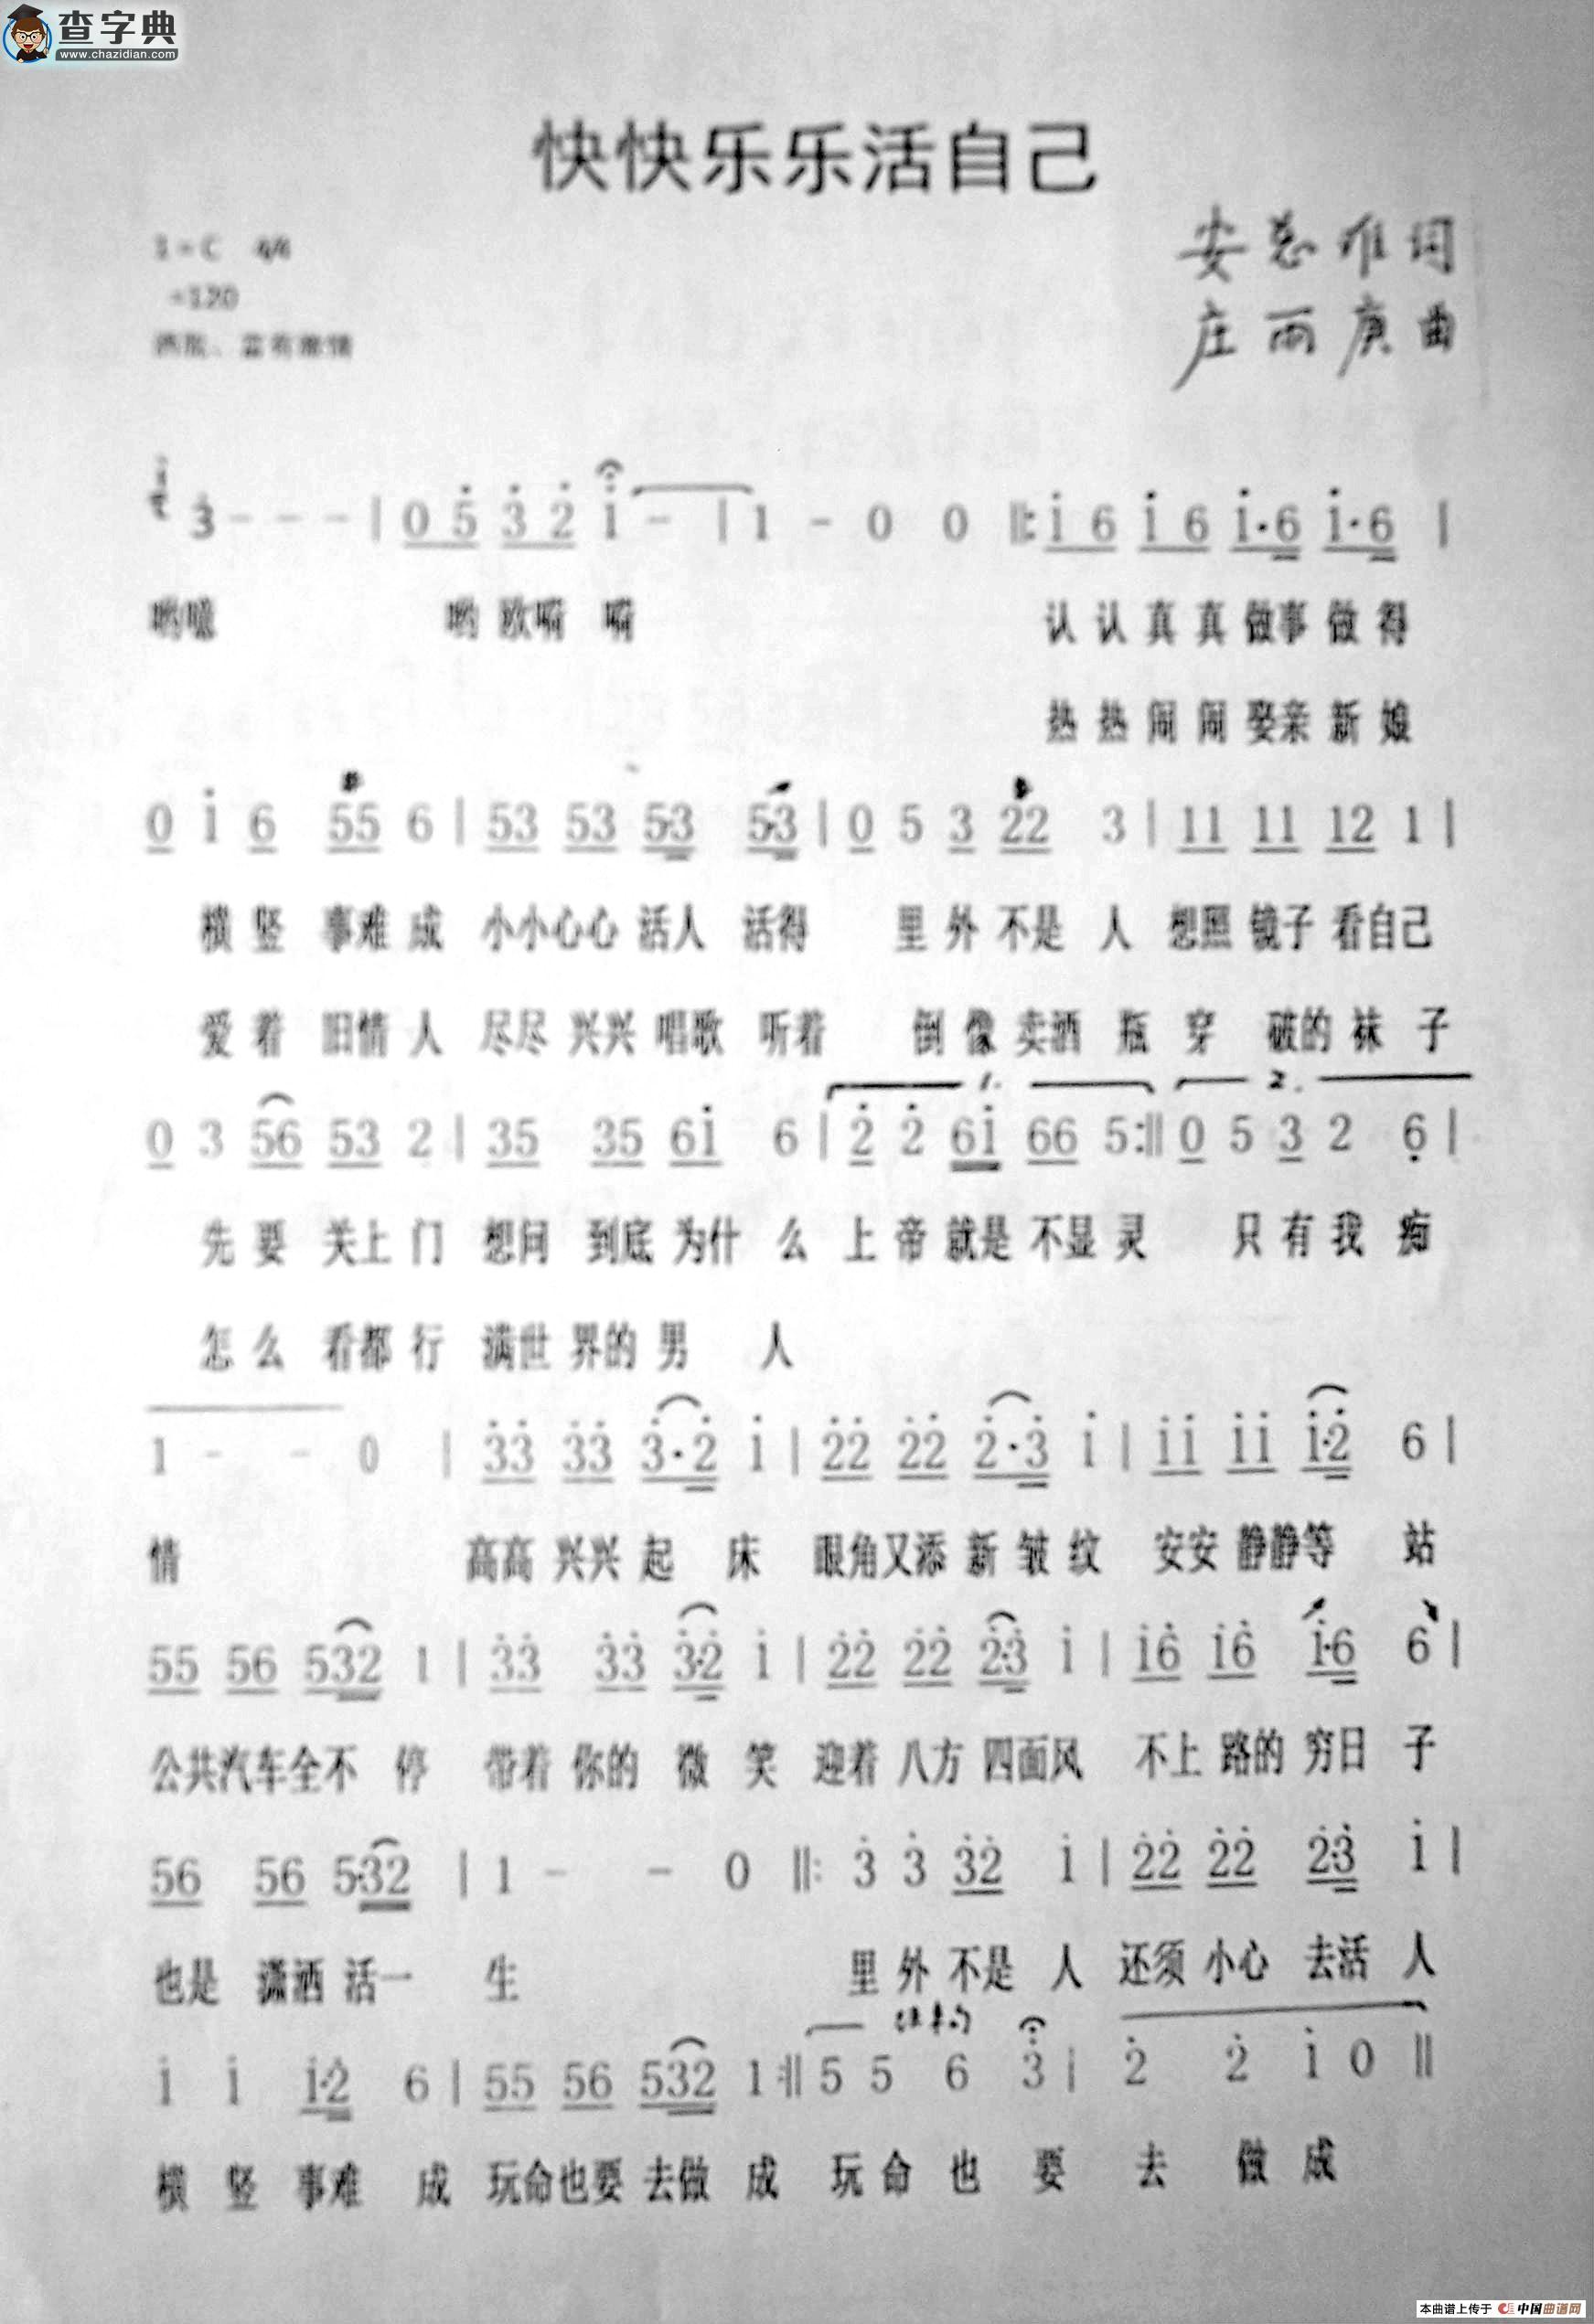 查字典
www.chazidian.com
快快乐乐活自己
1=C 4/4
=120
庄雨庚曲
3 - - - | 0 5 3 2 1 - | 1 - 0 0 ‖: 1 6 1 6 1·6 1·6 |
认认真真做事做得
热热闹闹娶亲新娘
0 1 6 55 6 | 53 53 5·3 5·3 | 0 5 3 22 3 | 11 11 12 1 |
横竖 事难成 小小心心 活人 活得 里外不是人 想照镜子看自己
爱着 旧情人 尽尽兴兴 唱歌 听着 倒像卖酒瓶 穿破的袜子
1. 2.
0 3 56 53 2 | 35 35 61 6 | 2 2 61 66 5 :‖ 0 5 3 2 6 |
先要 关上门 想问 到底为什么 上帝就是不显灵 只有我痴
怎么 看都行 满世界的男人
1 - - 0 | 33 33 3·2 1 | 22 22 2·3 1 | 11 11 1·2 6 |
情 高高兴兴起床 眼角又添新皱纹 安安静静等站
55 56 532 1 | 33 33 3·2 1 | 22 22 2·3 1 | 16 16 1·6 6 |
公共汽车全不停 带着你的微笑 迎着八方四面风 不上路的穷日子
56 56 5·32 | 1 - - 0 ‖: 3 3 32 1 | 22 22 2·3 1 |
也是 潇洒 活一 生 里外不是人 还须小心去活人
结束句
1 1 1·2 6 | 55 56 532 1 :‖ 5 5 6 3 | 2 2 1 0 ‖
横竖事难成 玩命也要去做成 玩命也要去做成
本曲谱上传于 中国曲谱网